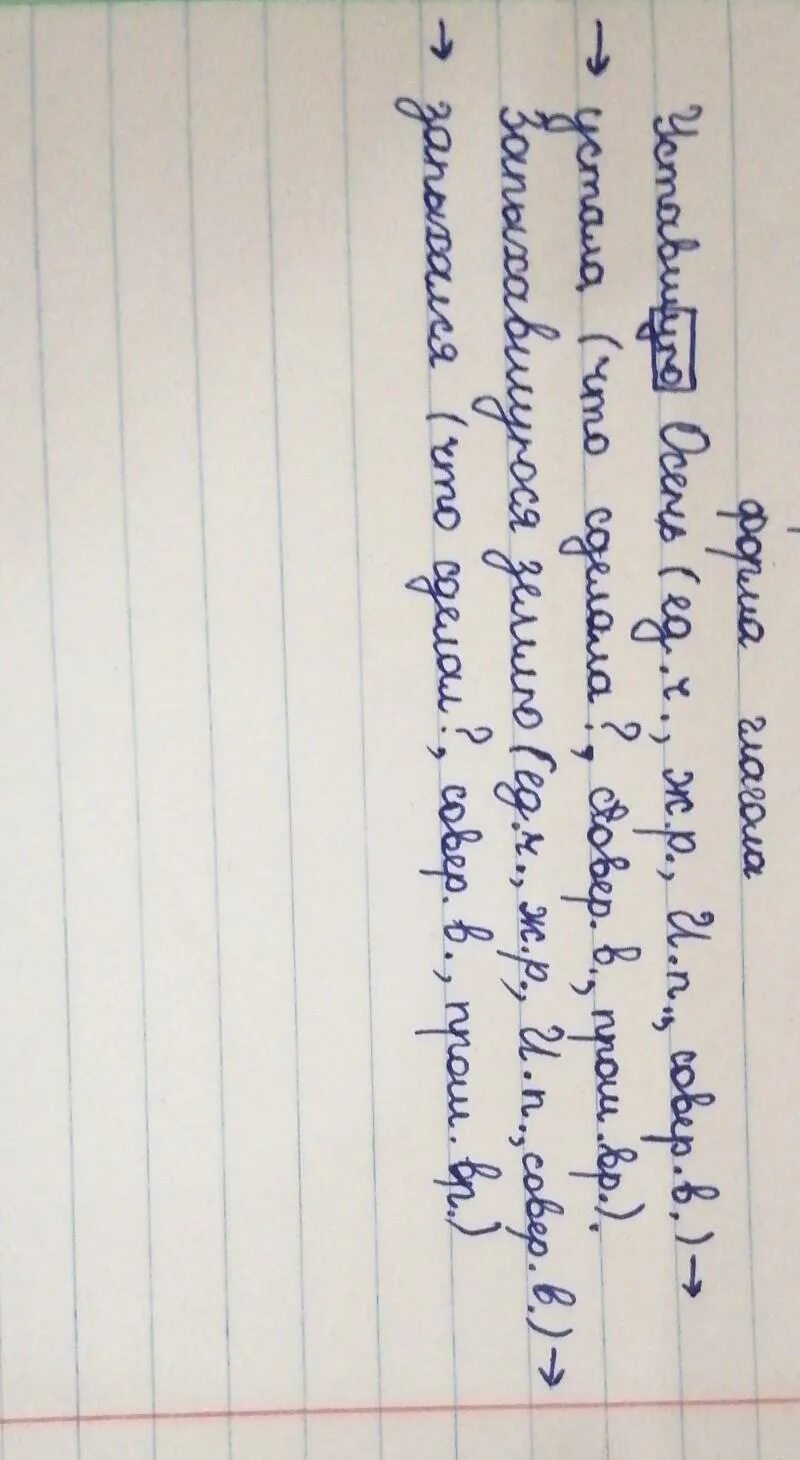 форма глагола
Уставшую Осень (ед.ч., ж.р., И.п., совер.в.) →
→ устала (что сделала?, совер.в., прош.вр.).
Запыхавшуюся землю (ед.ч., ж.р., И.п., совер.в.) →
→ запыхался (что сделал?, совер.в., прош.вр.)